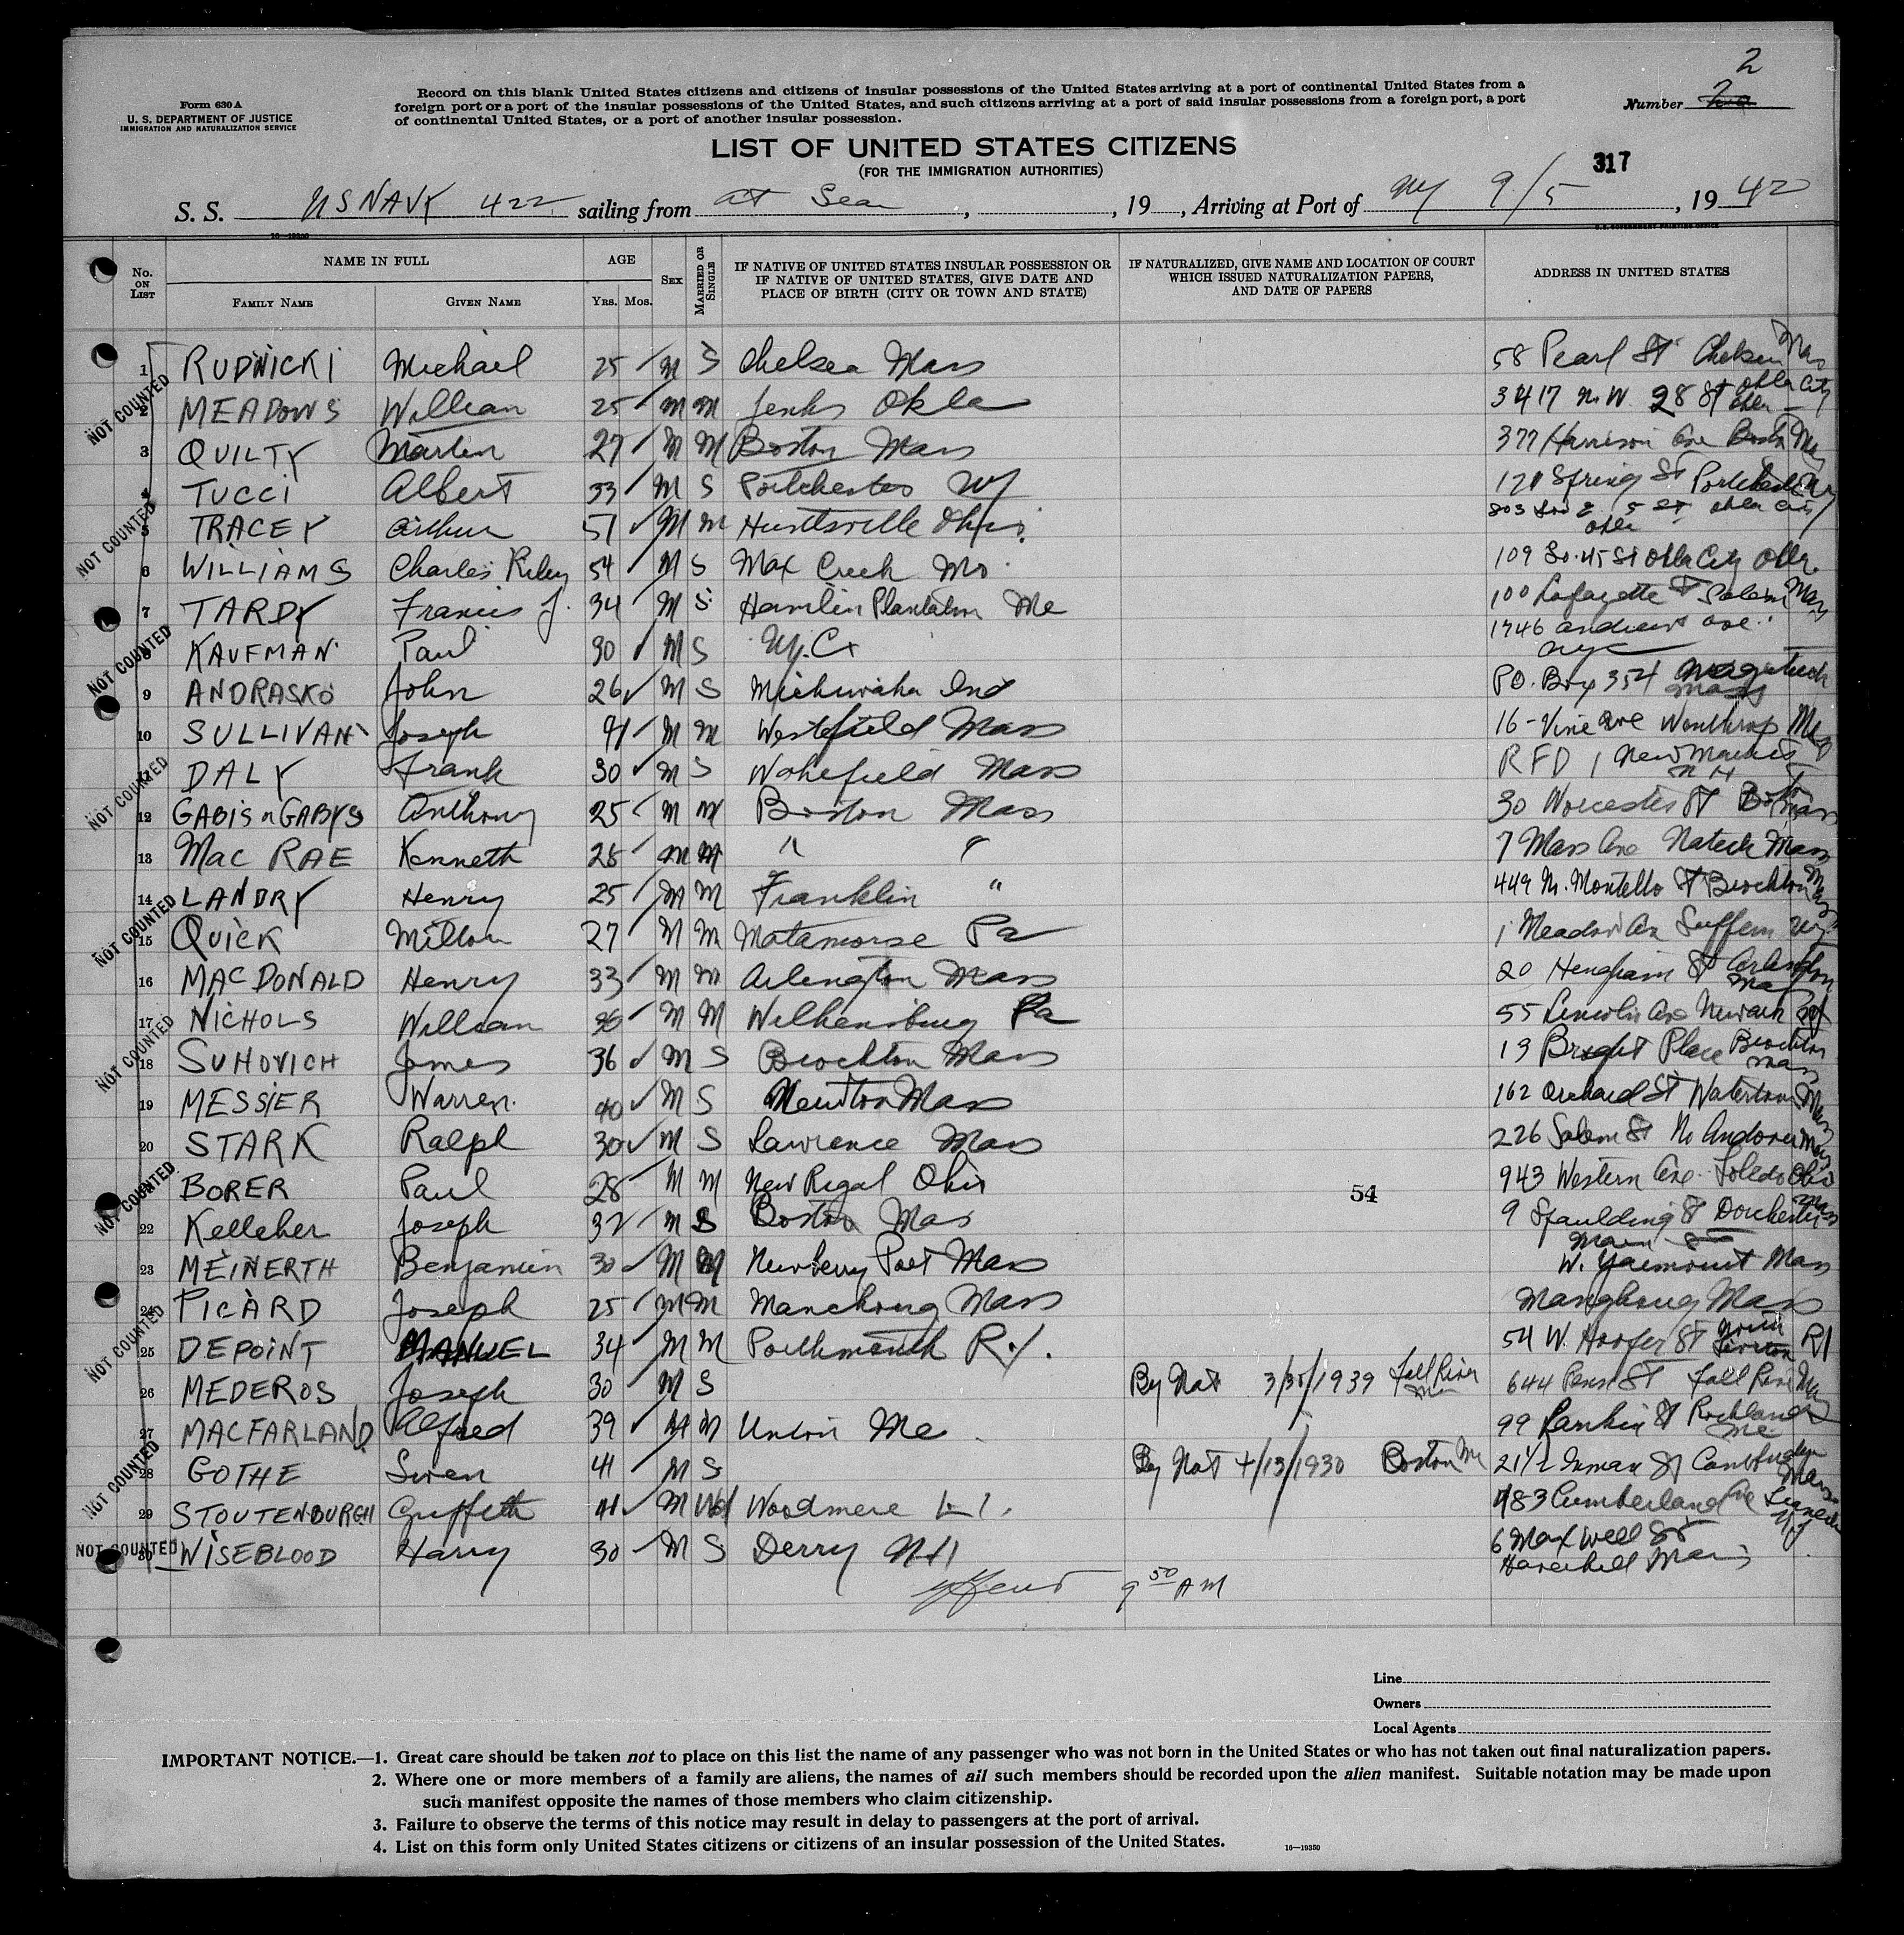 2
Form 630 A
U. S. DEPARTMENT OF JUSTICE
IMMIGRATION AND NATURALIZATION SERVICE
Record on this blank United States citizens and citizens of insular possessions of the United States arriving at a port of continental United States from a
foreign port or a port of the insular possessions of the United States, and such citizens arriving at a port of said insular possessions from a foreign port, a port
of continental United States, or a port of another insular possession.
Number 2
LIST OF UNITED STATES CITIZENS
(FOR THE IMMIGRATION AUTHORITIES)
317
S. S. US NAVY 422 sailing from at Sea, , 19 , Arriving at Port of NY 9/5, 1942
16—19350
U.S. GOVERNMENT PRINTING OFFICE
No. ON LIST NAME IN FULL FAMILY NAME GIVEN NAME AGE YRS. MOS. SEX MARRIED OR SINGLE IF NATIVE OF UNITED STATES INSULAR POSSESSION OR IF NATIVE OF UNITED STATES, GIVE DATE AND PLACE OF BIRTH (CITY OR TOWN AND STATE) IF NATURALIZED, GIVE NAME AND LOCATION OF COURT WHICH ISSUED NATURALIZATION PAPERS, AND DATE OF PAPERS ADDRESS IN UNITED STATES
1 RUDNICKI Michael 25 M S Chelsea Mass 58 Pearl St Chelsea Mass
NOT COUNTED 2 MEADOWS William 25 M M Jenks Okla 3417 N. W. 28 St Okla City Okla
3 QUILTY Martin 27 M M Boston Mass 377 Harrison Ave Boston Mass
4 TUCCI Albert 33 M S Portchester NY 121 Spring St Portchester NY
NOT COUNTED 5 TRACEY Arthur 51 M M Huntsville Ohio 803 5 St Okla City Okla
6 WILLIAMS Charles Riley 54 M S Max Creek Mo 109 So. 45 St Okla City Okla
7 TARDY Francis J. 34 M S Hamlin Plantation Me 100 Lafayette St Salem Mass
NOT COUNTED 8 KAUFMAN Paul 30 M S N.Y.C. 1746 Andrews Ave NYC
9 ANDRASKO John 26 M S Mishiwaka Ind PO. Box 354 Mass
10 SULLIVAN Joseph 41 M M Westfield Mass 16 - Vine Ave Winthrop Mass
NOT COUNTED 11 DALY Frank 30 M S Wakefield Mass RFD 1 New Market NH
12 GABIS or GABYS Anthony 25 M M Boston Mass 30 Worcester St Boston Mass
13 Mac RAE Kenneth 28 M M " " 7 Mass Ave Natick Mass
NOT COUNTED 14 LANDRY Henry 25 M M Franklin " 449 N. Montello St Brockton Mass
15 QUICK Milton 27 M M Matamorse Pa 1 Meadow Ave Suffern NY
16 MACDONALD Henry 33 M M Arlington Mass 20 St Arlington Mass
NOT COUNTED 17 NICHOLS William 36 M M Wilkensburg Pa 55 Lincoln Ave Newark NJ
18 SUHOVICH James 36 M S Brockton Mass 13 Bright Place Brockton Mass
19 MESSIER Warren 40 M S Newton Mass 162 Orchard St Watertown Mass
20 STARK Ralph 30 M S Lawrence Mass 226 Salem St No Andover Mass
NOT COUNTED 21 BORER Paul 28 M M New Regal Ohio 54 943 Western Ave. Toledo Ohio
22 Kelleher Joseph 32 M S Boston Mass 9 Spaulding St Dorchester Mass
23 MEINERTH Benjamin 30 M M Newbery Port Mass Main St W. Yarmouth Mass
NOT COUNTED 24 PICARD Joseph 25 M M Manchoug Mass Manghoug Mass
25 DEPOINT MANUEL 34 M M Porthmouth R.I. 54 W. Hooper St Tiverton RI
26 MEDEROS Joseph 30 M S By Nat 1939 Fall River 644 St Fall River Mass
27 MACFARLAND Alfred 39 M M Union Me 99 Rankin St Rockland Me
NOT COUNTED 28 GOTHE Sven 41 M S By Nat 4/13/1930 Boston 21 1/2 Inman St Cambridge Mass
29 STOUTENBURGH Griffith 41 M Wd Woodmere L.I. 483 Cumberland Ave NJ
NOT COUNTED 30 WISEBLOOD Harry 30 M S Derry NH 6 Maxwell St Haverhill Mass
9 50 AM
Line
Owners
Local Agents
IMPORTANT NOTICE.—1. Great care should be taken not to place on this list the name of any passenger who was not born in the United States or who has not taken out final naturalization papers.
2. Where one or more members of a family are aliens, the names of all such members should be recorded upon the alien manifest. Suitable notation may be made upon
such manifest opposite the names of those members who claim citizenship.
3. Failure to observe the terms of this notice may result in delay to passengers at the port of arrival.
4. List on this form only United States citizens or citizens of an insular possession of the United States.
16—19350